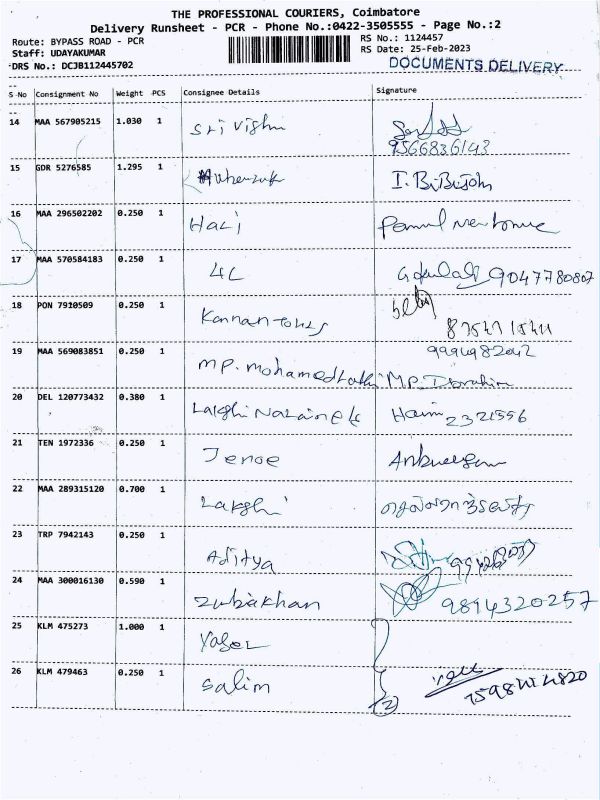 THE PROFESSIONAL COURIERS, Coimbatore
Delivery Runsheet - PCR - Phone No.:0422-3505555 - Page No.:2
Route: BYPASS ROAD - PCR
RS No.: 1124457
Staff: UDAYAKUMAR
RS Date: 25-Feb-2023
DRS No.: DCJB112445702
DOCUMENTS DELIVERY
S No Consignment No Weight PCS Consignee Details Signature
14 MAA 567905215 1.030 1 Sri Vishnu
9566836143
15 GDR 5276585 1.295 1 I.
16 MAA 296502202 0.250 1 Hari
17 MAA 570584183 0.250 1 9047780807
18 PON 7910509 0.250 1 Kannan Tours
19 MAA 569083851 0.250 1 MP. Mohamed MP. Ibrahim
9994982042
20 DEL 120773432 0.380 1 2321556
21 TEN 1972336 0.250 1 Jenoe
22 MAA 289315120 0.700 1 Lakshi
23 TRP 7942143 0.250 1 Aditya
24 MAA 300016130 0.590 1 Zubakhan 9894320257
25 KLM 475273 1.000 1
26 KLM 479463 0.250 1 Salim